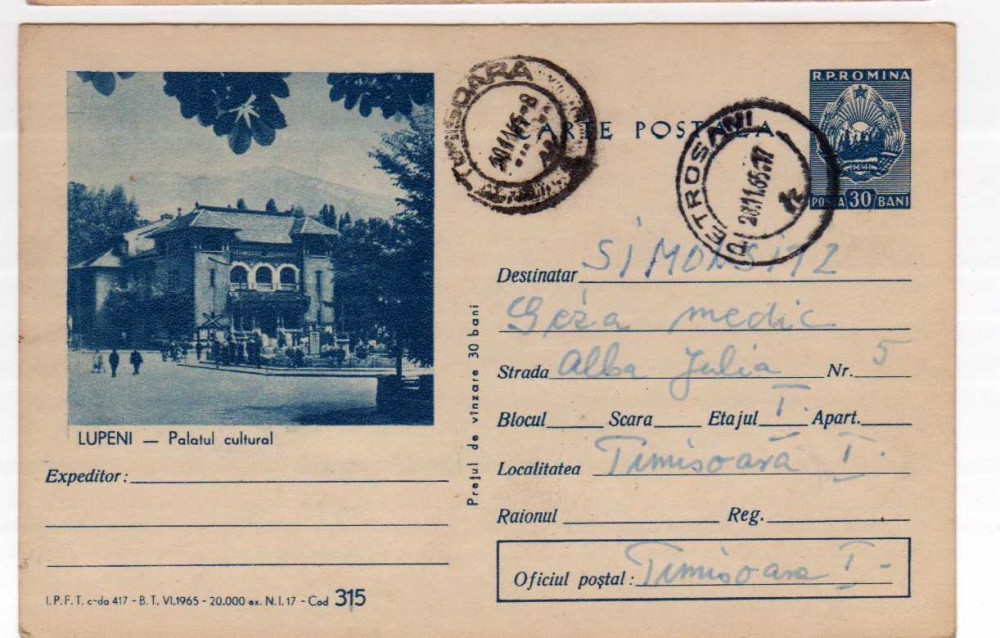 R.P.ROMINA
CARTE POSTALA
POSTA 30 BANI
TIMISOARA
PETROSANI
20.11.65.17
Destinatar SIMONSITZ
Géza medic
Strada Alba Julia Nr. 5
Blocul Scara Etajul I. Apart.
Localitatea Timisoara I.
Raionul Reg.
Oficiul poştal: Timişoara I-
Preţul de vînzare 30 bani
LUPENI — Palatul cultural
Expeditor:
I.P.F.T. c-da 417 - B.T. VI.1965 - 20.000 ex. N.I.17 - Cod 315